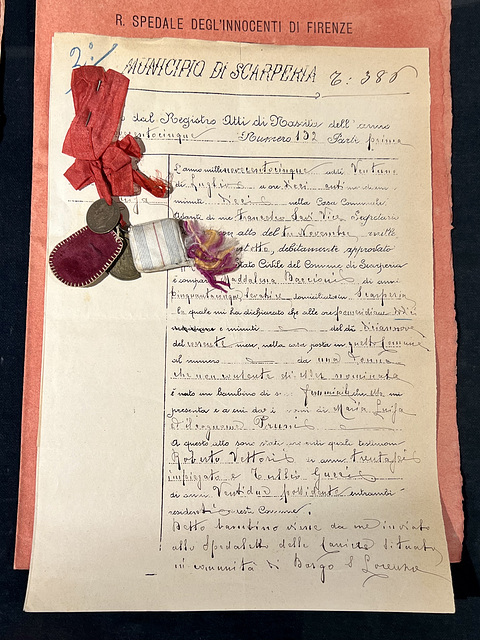 R. SPEDALE DEGL'INNOCENTI DI FIRENZE
2:
MUNICIPIO DI SCARPERIA
dal Registro Atti di Nascita dell'anno
Numero 132 Parte prima
L'anno millenovecentocinque addì Ventuno
di Luglio a ore Dieci
minuti Dieci nella Casa Comunale
Avanti di me Francesco Vice Segretario
atto del Novembre mille
debitamente approvato
Stato Civile del Comune di Scarperia
è comparsa Maddalena Baccioni di anni
domiciliata in Scarperia
la quale mi ha dichiarato che alle ore pomeridiane
e minuti del dì Diciannove
del corrente mese, nella casa posta in questo Comune
al numero da una Donna
che non consente di esser nominata
è nato un bambino di sesso femminile che ella mi
presenta e a cui dà i nomi di Maria Luisa
e il cognome Pruni
A questo atto sono stati presenti quali testimoni
Roberto Vettori di anni trentasei
impiegato e Tullio
di anni Ventidue possidente entrambi
residenti in questo Comune.
Detto bambino viene da me inviato
allo Spedaletto delle situato
in comunità di Borgo S. Lorenzo